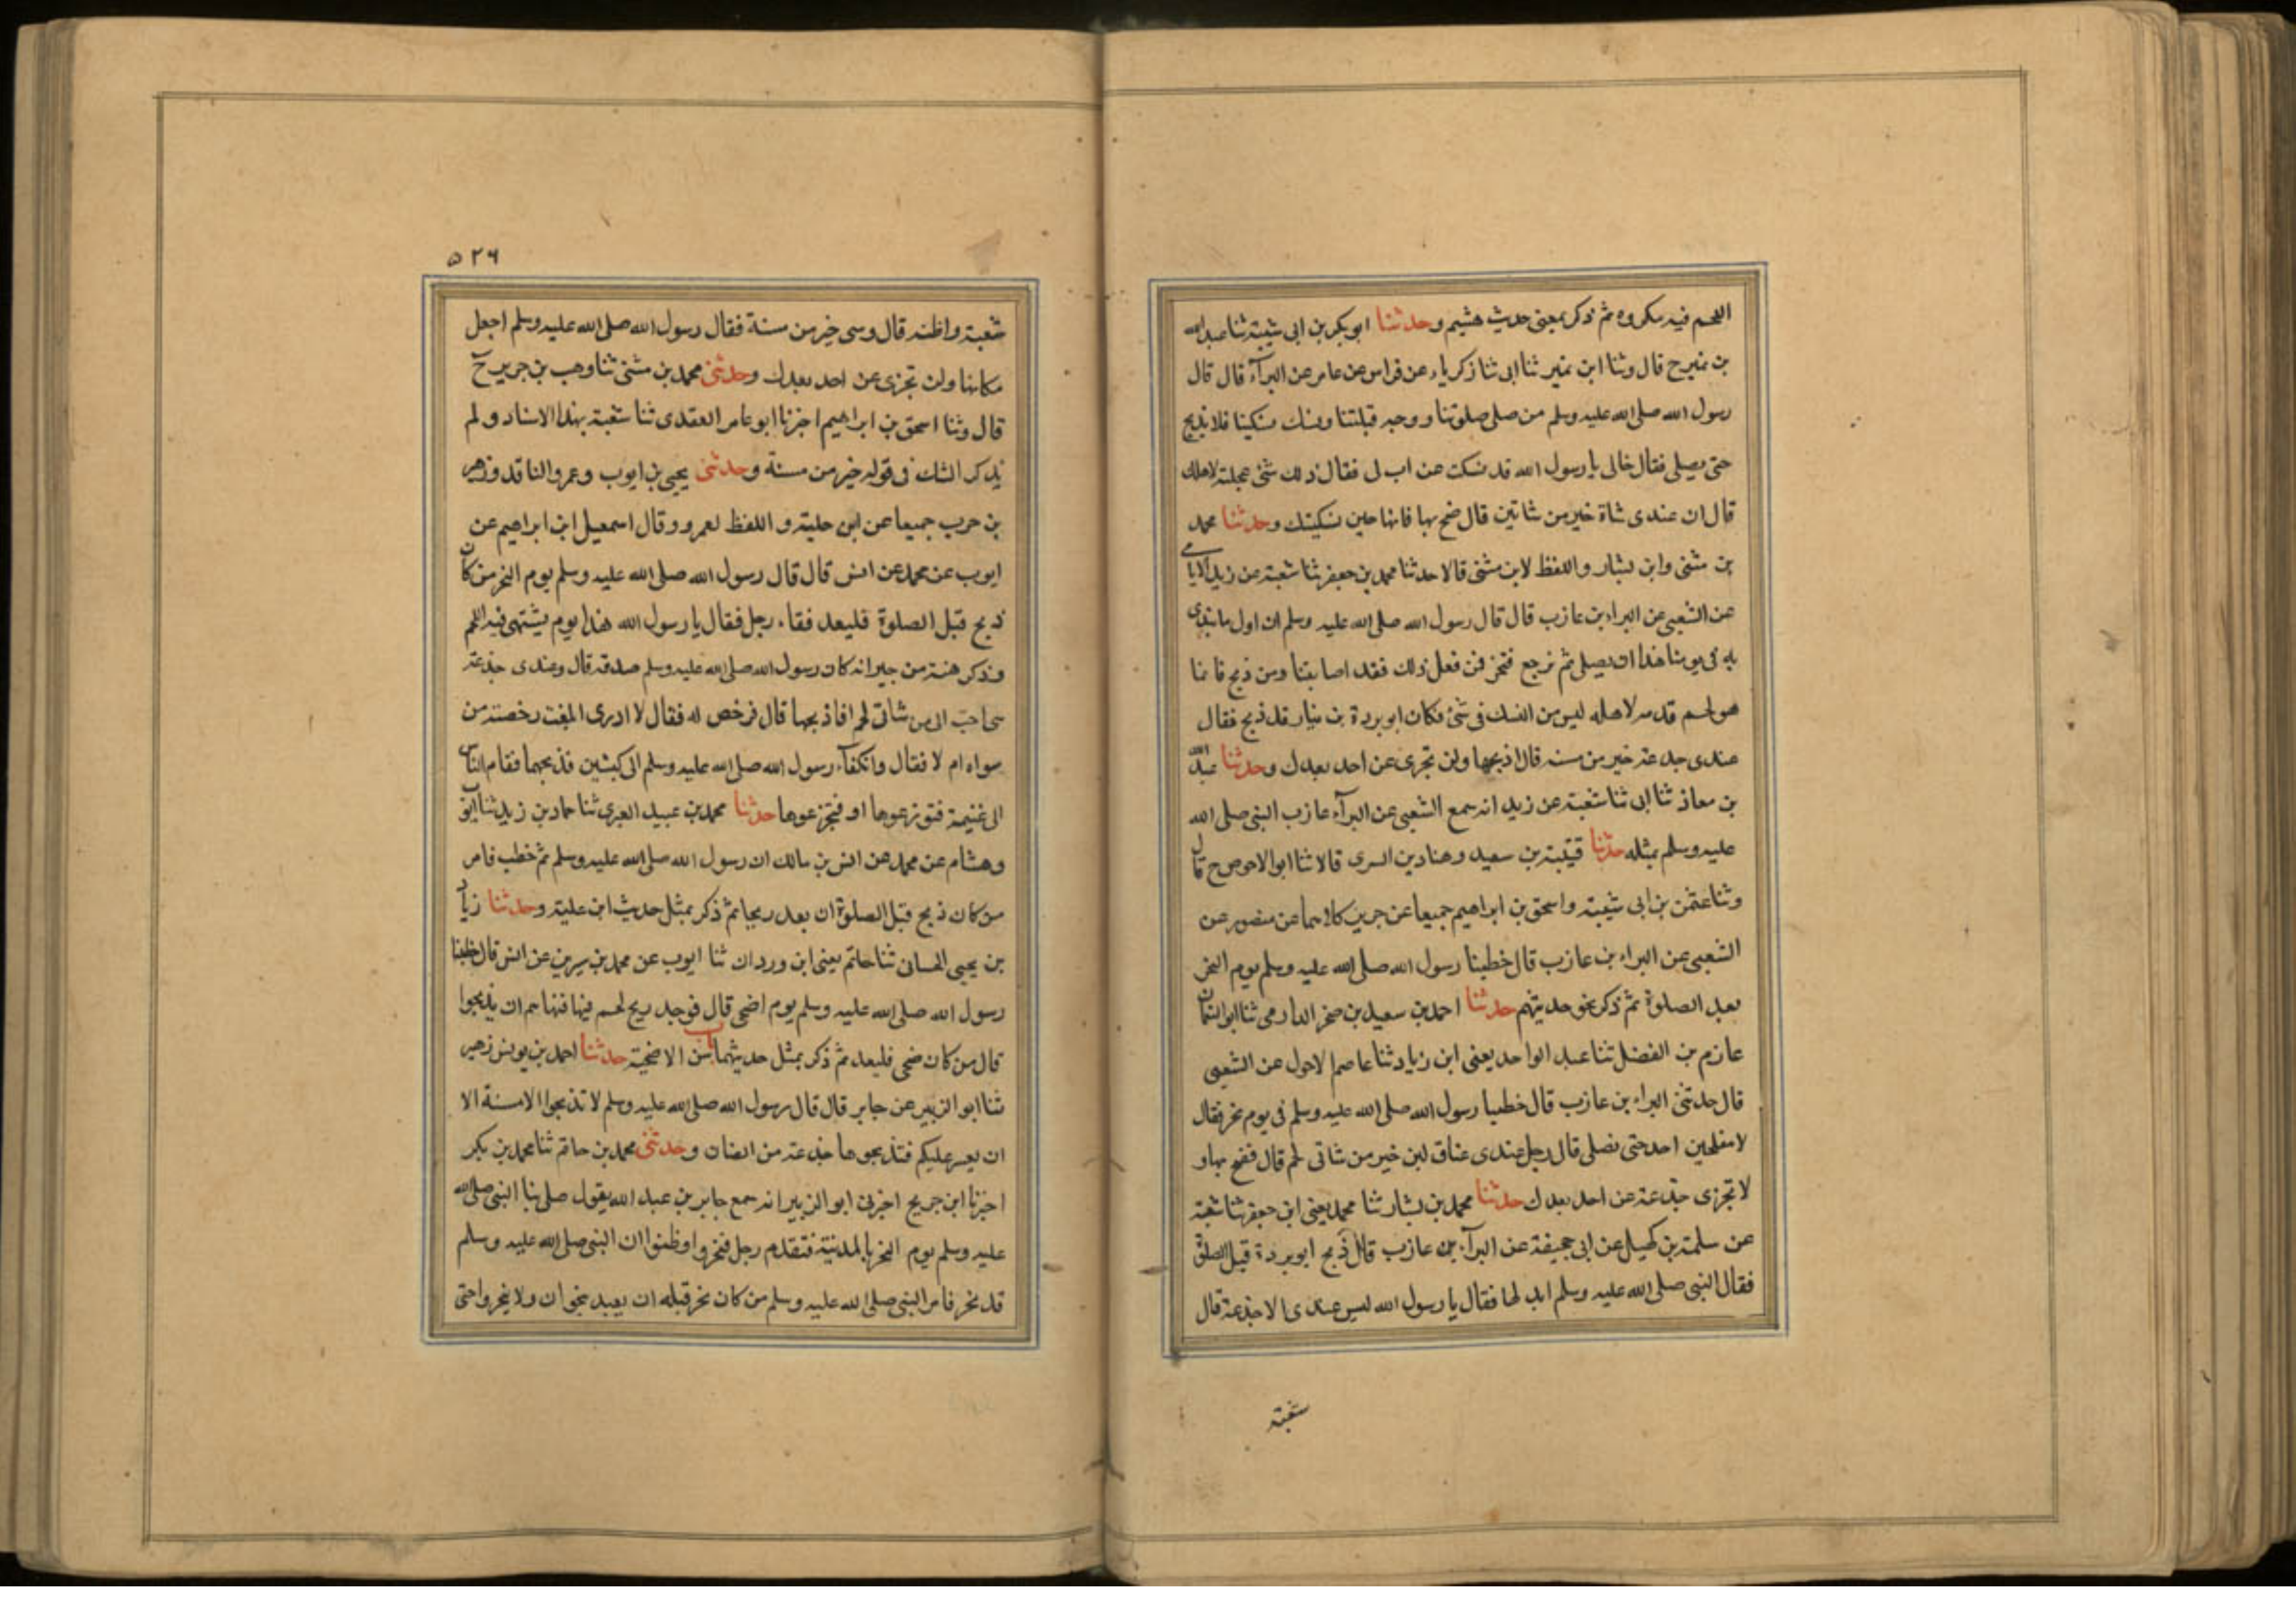 اللحم فيه مكروه ثم ذكر بمعنى حديث هشيم وحدثنا ابو بكر بن ابى شيبة ثنا عبد الله
بن نمير ح قال وثنا ابن نمير ثنا ابى ثنا زكرياء عن فراس عن عامر عن البرآء قال قال
رسول الله صلى الله عليه وسلم من صلى صلوتنا ووجه قبلتنا ونسك نسكينا فلا يذبح
حتى يصلى فقال خالى يا رسول الله قد نسكت عن اب لى فقال ذلك شئ عجلته لاهلك
قال ان عندى شاة خير من شاتين قال ضح بها فانها حين نسكيتك وحدثنا محمد
بن مثنى وابن بشار واللفظ لابن مثنى قالا حدثنا محمد بن جعفر ثنا شعبة عن زبيد الايامى
عن الشعبى عن البراء بن عازب قال قال رسول الله صلى الله عليه وسلم ان اول ما نبتدى
به فى يومنا هذا ان يصلى ثم نرجع فنحر فمن فعل ذلك فقد اصابتنا ومن ذبح فانما
هو لحم قدمه لاهله ليس من النسك فى شئ فكان ابو بردة بن نيار قد ذبح فقال
عندى جدعة خير من مسنه قال اذبحها ولن تجزى عن احد بعدك وحدثنا عبد الله
بن معاذ ثنا ابى ثنا شعبة عن زبيد انه سمع الشعبى عن البرآء عازب النبى صلى الله
عليه وسلم بمثله حدثنا قتيبة بن سعيد وهناد بن السرى قالا ثنا ابو الاحوص ح قال
وثنا عثمن بن ابى شيبة واسحق بن ابراهيم جميعا عن جرير كلاهما عن منصور عن
الشعبى عن البراء بن عازب قال خطبنا رسول الله صلى الله عليه وسلم يوم النحر
بعد الصلوة ثم ذكر نحو حديثهم حدثنا احمد بن سعيد بن صخر الدارمى ثنا ابو النعمان
عازم بن الفضل ثنا عبد الواحد يعنى ابن زياد ثنا عاصم الاحول عن الشعبى
قال حدثنى البراء بن عازب قال خطبنا رسول الله صلى الله عليه وسلم فى يوم نحر فقال
لا احد حتى نصلى قال رجل عندى عناق لبن خير من شاتى لحم قال فضح بها و
لا تجزى جذعة عن احد بعدك حدثنا محمد بن بشار ثنا محمد يعنى ابن جعفر ثنا شعبة
عن سلمة بن كهيل عن ابى جحيفة عن البرآء بن عازب قال ذبح ابو بردة قبل الصلوة
فقال النبى صلى الله عليه وسلم ابدلها فقال يا رسول الله ليس عندى الا جذعة قال
شعبة
٥٢٦
شعبة واظنه قال وسى خير من مسنة فقال رسول الله صلى الله عليه وسلم اجعل
مكانها ولن تجزى عن احد بعدك وحدثنى محمد بن مثنى ثنا وهب بن جرير ح
قال وثنا اسحق بن ابراهيم اخبرنا ابو عامر العقدى ثنا شعبة بهذا الاسناد ولم
يذكر الشك فى قوله خير من مسنة وحدثنى يحيى بن ايوب وعمرو الناقد وزهير
بن حرب جميعا عن ابن علية واللفظ لعمرو وقال اسمعيل ابن ابراهيم عن
ايوب عن محمد عن انس قال قال رسول الله صلى الله عليه وسلم يوم النحر من كان
ذبح قبل الصلوة فليعد فقاء رجل فقال يا رسول الله هذا يوم يشتهى فيه اللحم
وذكر هنة من جيرانه كان رسول الله صلى الله عليه وسلم صدقه قال وعندى جذعة
احب الى من شاتى لحم افاذبحها قال فرخص له فقال لا ادرى ابلغت رخصته من
سواه ام لا فقال وانكفآء رسول الله صلى الله عليه وسلم الى كبشين فذبحهما فقام الناس
الى غنيمة فتوزعوها او فتجزعوها حدثنا محمد بن عبيد الغبرى ثنا حماد بن زيد ثنا ايوب
وهشام عن محمد عن انس بن مالك ان رسول الله صلى الله عليه وسلم ثم خطب فامر
من كان ذبح قبل الصلوة ان يعد ثم ذكر بمثل حديث ابن علية وحدثنا زياد
بن يحيى الحسانى ثنا حاتم يعنى ابن وردان ثنا ايوب عن محمد بن سيرين عن انس قال خطبنا
رسول الله صلى الله عليه وسلم يوم اضحى قال فوجد ريح لحم فيها فنهاهم ان يذبحوا
قال من كان ضحى فليعد ثم ذكر بمثل حديثهما باب سن الاضحية حدثنا احمد بن يونس زهير
ثنا ابو الزبير عن جابر قال قال رسول الله صلى الله عليه وسلم لا تذبحوا الا مسنة الا
ان يعسر عليكم فتذبحوها جذعة من الضان وحدثنى محمد بن حاتم ثنا محمد بن بكر
اخبرنا ابن جريج اخبرنى ابو الزبير انه سمع جابر بن عبد الله يقول صلى بنا النبى صلى الله
عليه وسلم يوم النحر بالمدينة فتقدم رجل فنحروا وظنوا ان النبى صلى الله عليه وسلم
قد نحر فامر النبى صلى الله عليه وسلم من كان نحر قبله ان يعيد بنحر ان ولا ينحروا حتى